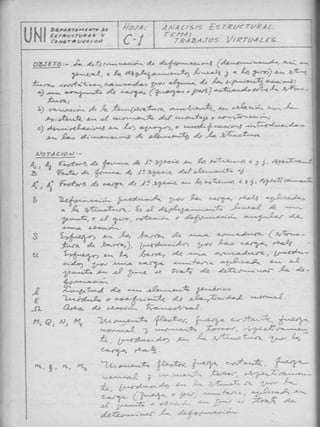 UNI DEPARTAMENTO DE ESTRUCTURAS Y CONSTRUCCION
HOJA: C-1
ANALISIS ESTRUCTURAL.
TEMA: TRABAJOS VIRTUALES.
OBJETO:- La determinación de deformaciones (denominando así, en
general, a los desplazamientos lineales y a los giros) en
causadas por alguna de las siguientes acciones:
a) un conjunto de cargas (fuerzas o pares) actuando en la
tura;
b) variación de la temperatura ambiente, en relación con la
existente en el momento del montaje o construcción;
c) en los apoyos, o modificaciones introducidas
en las dimensiones de elementos de la estructura
NOTACION:-
Factores de forma de 1ª especie en los extremos i y j,
Factor de forma de 2ª especie del elemento ij
Factores de carga de 1ª especie en los extremos i y j,
δ Deformación producida por las cargas reales aplicadas
a la estructura. Es el desplazamiento lineal de un
punto, o el giro, rotación o deformación angular de
una sección.
S Esfuerzo, en las barras de una armadura
de barras), producidos por las cargas reales
u Esfuerzo, en las barras de una armadura,
por una carga unitaria aplicada en el
punto en el que se trata de determinar la
formación.
ℓ Longitud de un elemento genérico
E Módulo o coeficiente de elasticidad normal.
Ω Area de sección transversal
M, Q, N, Mt Momento flector, fuerza cortante, fuerza
normal y momento torsor, respectivamen-
te, producidos en la estructura por las
cargas reales.
m, q, n, mt Momento flector, fuerza cortante, fuerza
normal y momento torsor, respectivamen-
te, producidos en la estructura por la
carga (fuerza o par) unitaria, aplicada en
el punto o sección en que se trata de
determinar la deformación.